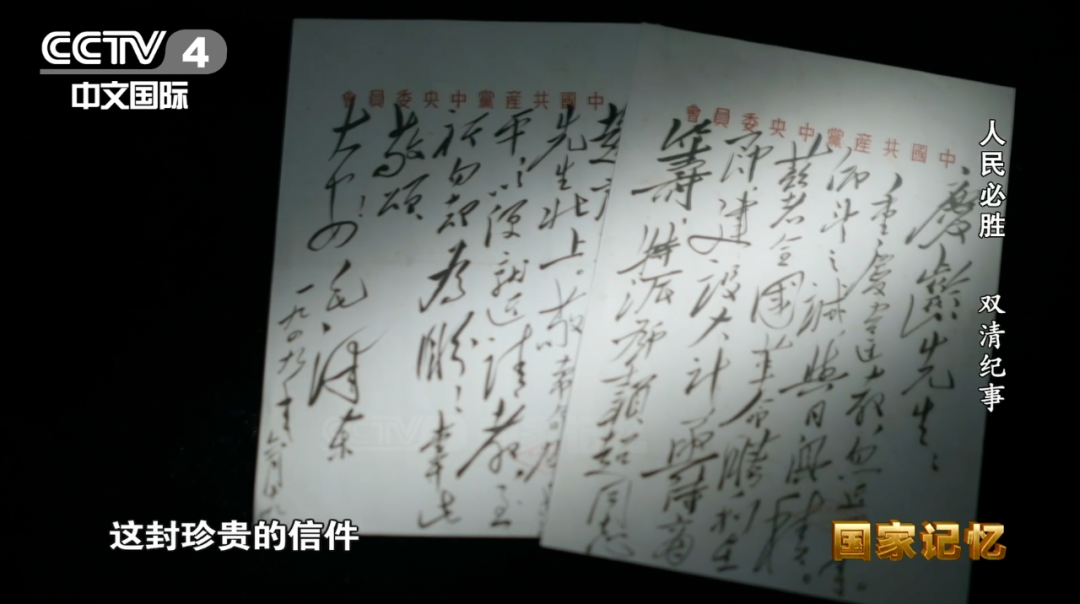 CCTV 4
中文国际
人民必胜 双清纪事
中國共產黨中央委員會
慶齡先生：
仰斗之誠，與日俱積。
茲者全國革命勝利在
建設大計，亟待商
籌，特派鄧穎超同志
中國共產黨中央委員會
先生北上。敬希命
平，以便就近請教，至
祈勿却為盼！專此
敬頌
大安！
毛澤東
一九四九年六月十九
这封珍贵的信件
国家记忆